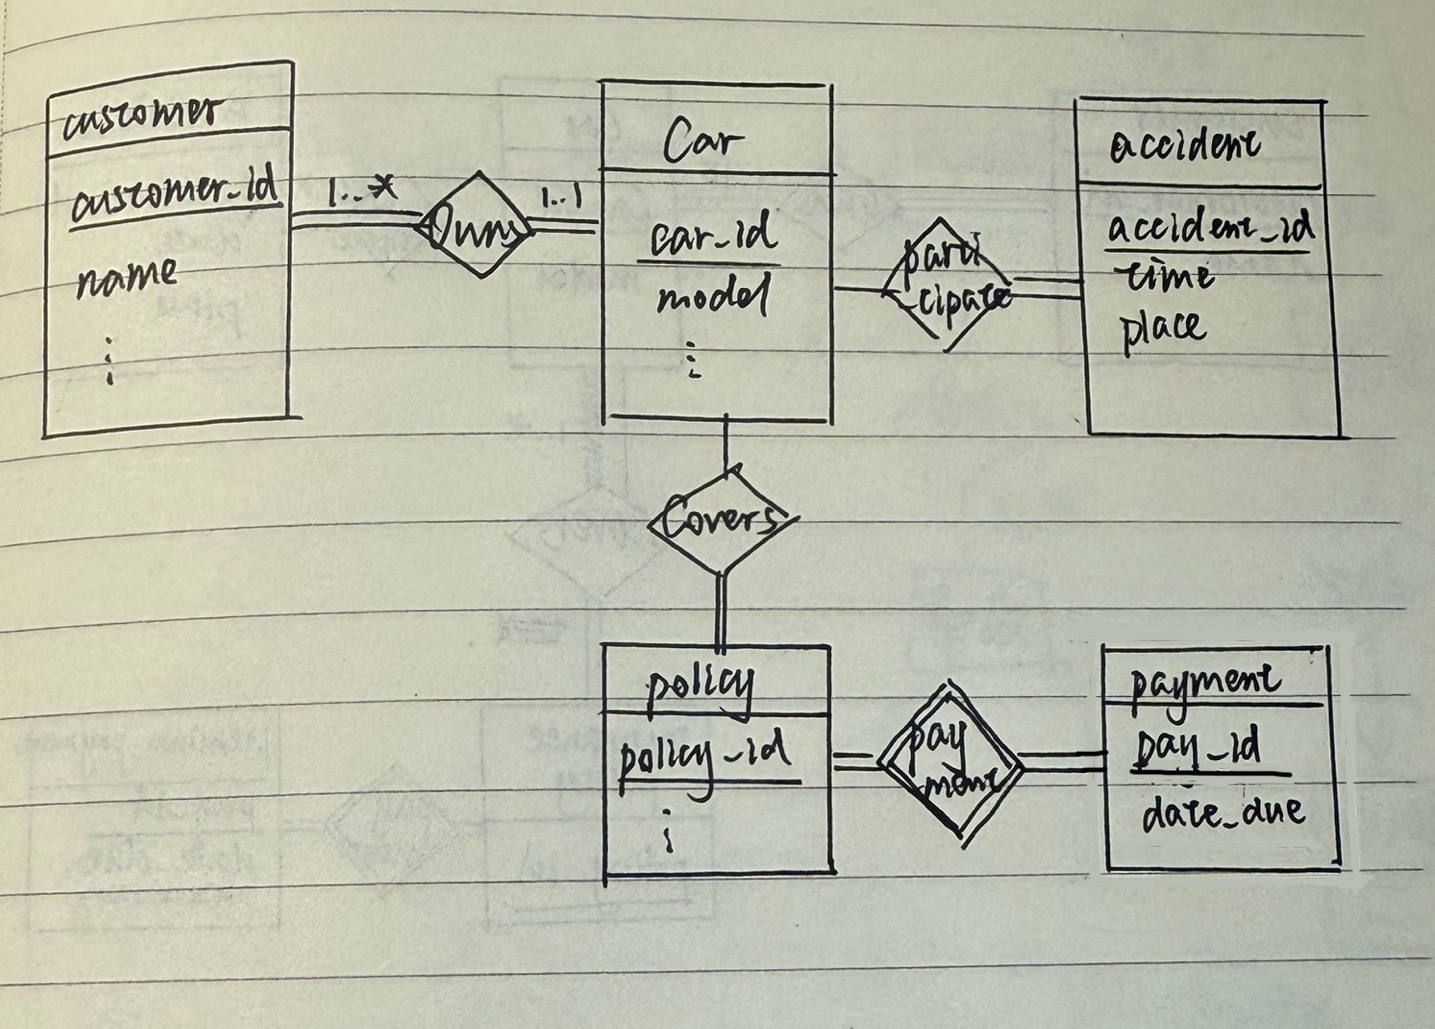 customer
customer_id
name
1..*
Owns
1..1
Car
car_id
model
parti
-cipate
accident
accident_id
time
place
Covers
policy
policy_id
pay
ment
payment
pay_id
date_due